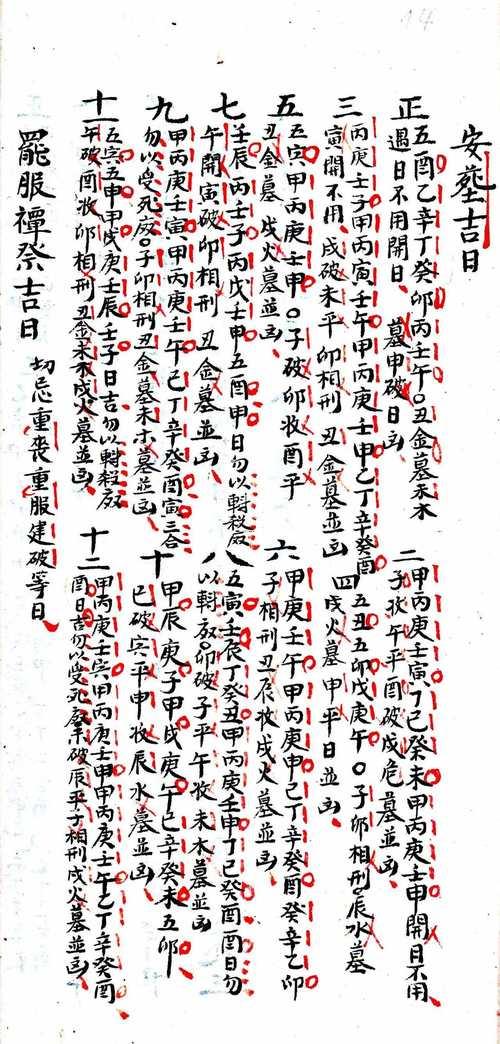 14
安塟吉日
正
五酉乙辛丁癸卯丙壬午丑金墓未木
遇日不用開日墓申破日凶
二
甲丙庚壬寅丁己癸未甲丙庚壬申開日不用
子收午平酉破戍危墓並凶
三
丙庚壬子甲丙寅壬午甲丙庚壬申乙丁辛癸酉
寅開不用戍破未平卯相刑丑金墓並凶
四
五丑五卯戊庚午子卯相刑辰水墓
戍火墓申平日並凶
五
五寅甲丙庚壬申子破卯收酉平
丑金墓戍火墓並凶
六
甲庚壬午甲丙庚申乙丁辛癸酉癸辛乙卯
子相刑丑辰收戍火墓並凶
七
壬辰丙壬子丙戊壬申五酉申日勿以
午開寅破卯相刑丑金墓並凶
八
五寅壬辰丁癸丑甲丙庚壬申丁己癸酉酉日勿
以卯破子平午收未木墓並凶
九
甲丙庚壬寅甲丙庚壬午乙丁辛癸酉寅三合
勿以受死子卯相刑丑金墓未木墓並凶
十
甲辰庚子甲戍庚午己辛癸未五卯
已破寅平申收辰水墓並凶
十一
五寅五申甲戍庚壬辰壬子日吉勿以
午破酉收卯相刑丑金未木戍火墓並凶
十二
甲丙庚壬寅甲丙庚壬申甲丙庚壬午乙丁辛癸酉
酉日吉勿以受死未破辰平子相刑戍火墓並凶
罷服禫祭吉日
切忌重喪重服建破等日